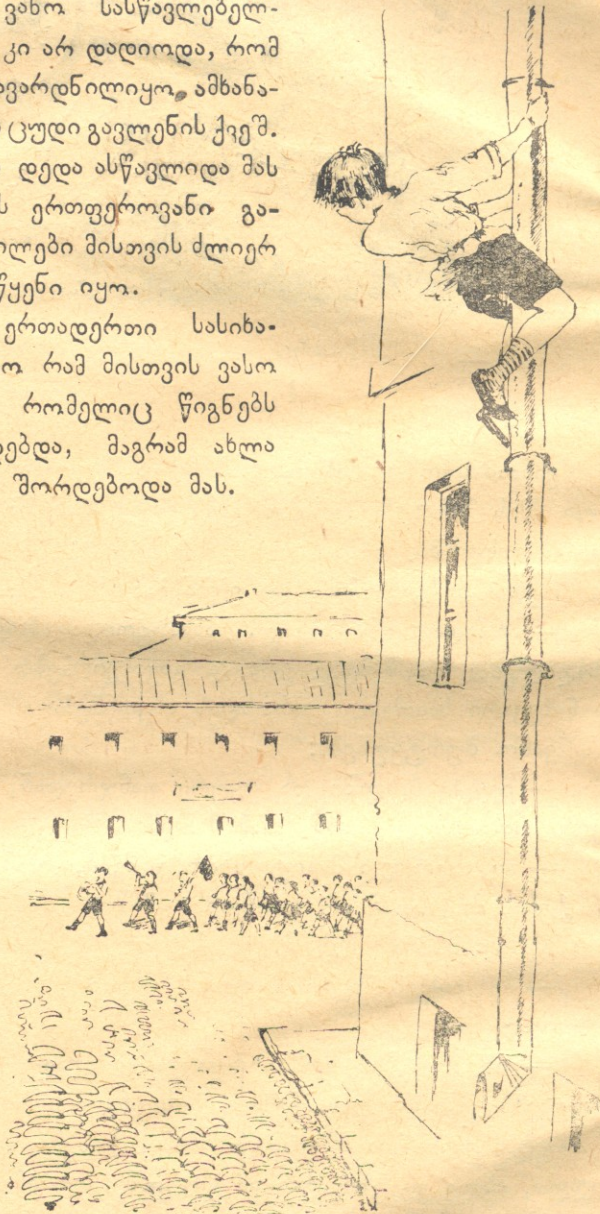 ვანო სასწავლებელ-
კი არ დადიოდა, რომ
ავარდნილიყო ამხანა-
ცუდი გავლენის ქვეშ.
დედა ასწავლიდა მას
ს ერთფეროვანი გა-
ილები მისთვის ძლიერ
წყენი იყო.
ერთადერთი სასიხა-
ო რამ მისთვის ვასო
რომელიც წიგნებს
ებდა, მაგრამ ახლა
შორდებოდა მას.